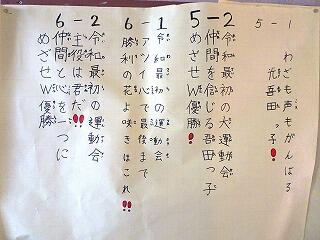 5-1
わざも声もがんばる
光春田っ子!
5-2
令和最初の大運動会
仲間を信じる君田っ子
めざせW優勝!
6-1
令和最初の運動会
最後まで
勝利の花よ咲きほこれ!!
6-2
令和最初の運動会
主役は君だ!!
仲間と心を一つに
めざせW優勝